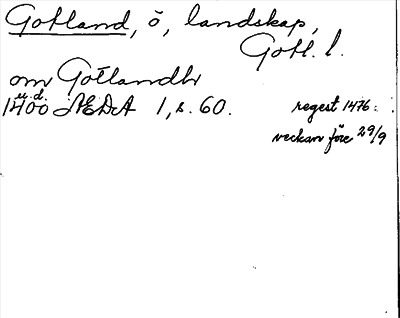 Gotland, ö, landskap,
Gotl. l.
om Gotlandh
u.d.
1400 ÆDA 1, s. 60. regest 1476:
veckan före 29/9